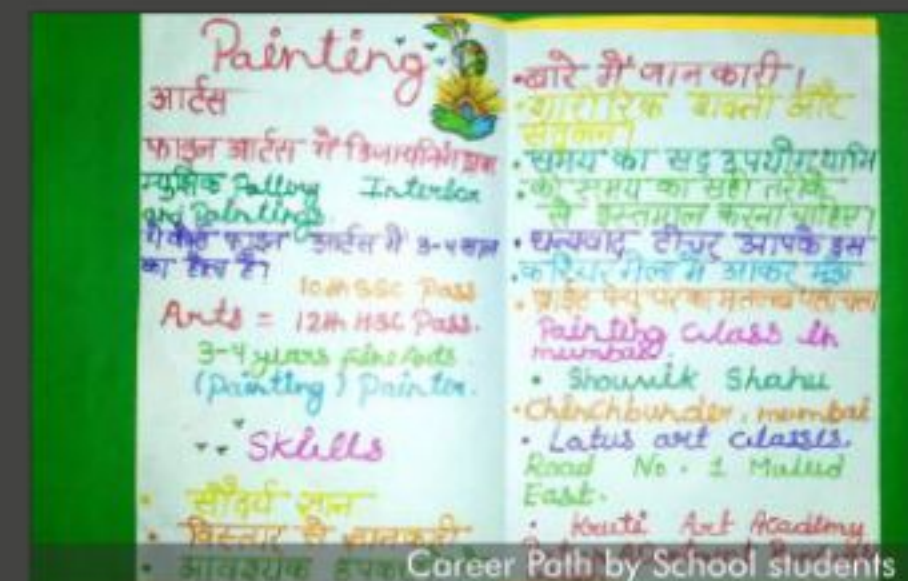 Painting
आर्टस
फाइन आर्टस में डिजायनिंग
म्युझिक Pallory Interior
and Paintings
फाइन आर्टस में 3-4 साल
का
10th SSC Pass
Arts = 12th HSC Pass.
3-4 years Fine Arts
(Painting) Painter.
Skills
सौंदर्य ज्ञान
विस्तार से जानकारी
आवश्यक
• बारे में जानकारी।
• शारीरिक शक्ती और
संतुलन।
• समय का सद उपयोग यानि
• की समय का सही तरीके
से इस्तमाल करना चाहिए।
• धन्यवाद टीचर आपके इस
• करियर मेला में आकर मुझे
Painting class in
mumbai.
• Shouvik Shahu
• Chinchbunder, mumbai
• Latus art classis.
Road No. 1 Mulud
East.
• Kruti Art Academy
Career Path by School students